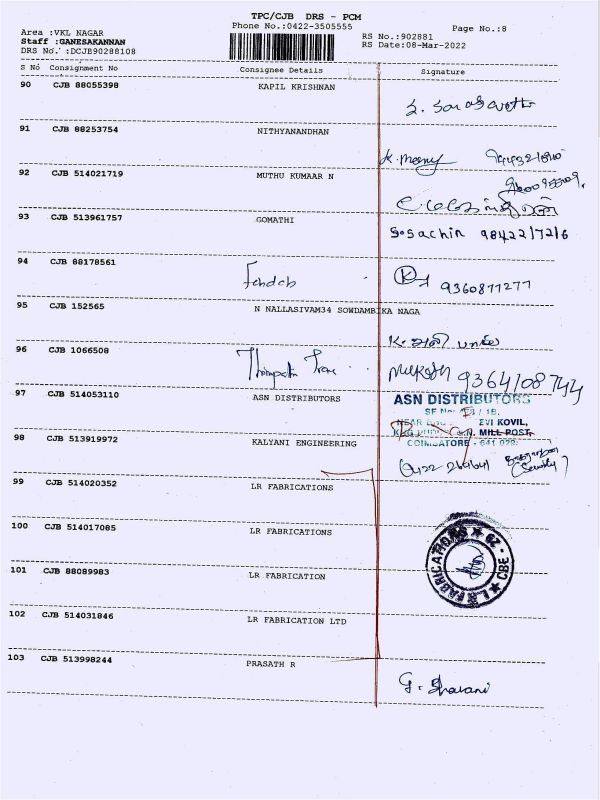 TPC/CJB DRS - PCM
Phone No.:0422-3505555
Page No.:8
Area :VKL NAGAR
Staff :GANESAKANNAN
DRS No. :DCJB90288108
RS No.:902881
RS Date:08-Mar-2022
S No Consignment No Consignee Details Signature
90 CJB 88055398 KAPIL KRISHNAN
S. Saraswathi
91 CJB 88253754 NITHYANANDHAN
92 CJB 514021719 MUTHU KUMAAR N
93 CJB 513961757 GOMATHI
S.Sachin 98422/72/6
94 CJB 88178561
9360877277
95 CJB 152565 N NALLASIVAM34 SOWDAMBIKA NAGA
96 CJB 1066508
9364108744
97 CJB 514053110 ASN DISTRIBUTORS
ASN DISTRIBUTORS
EVI KOVIL,
MILL POST,
COIMBATORE - 641 029.
98 CJB 513919972 KALYANI ENGINEERING
(Security)
99 CJB 514020352 LR FABRICATIONS
100 CJB 514017085 LR FABRICATIONS
101 CJB 88089983 LR FABRICATION
LR FABRICATIONS ★ CBE - 29 ★
102 CJB 514031846 LR FABRICATION LTD
103 CJB 513998244 PRASATH R
G. Sharani